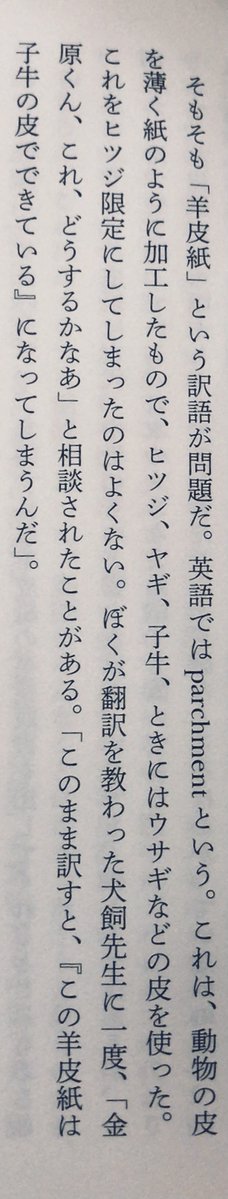 そもそも「羊皮紙」という訳語が問題だ。英語では parchment という。これは、動物の皮
を薄く紙のように加工したもので、ヒツジ、ヤギ、子牛、ときにはウサギなどの皮を使った。
これをヒツジ限定にしてしまったのはよくない。ぼくが翻訳を教わった犬飼先生に一度、「金
原くん、これ、どうするかなあ」と相談されたことがある。「このまま訳すと、『この羊皮紙は
子牛の皮でできている』になってしまうんだ」。